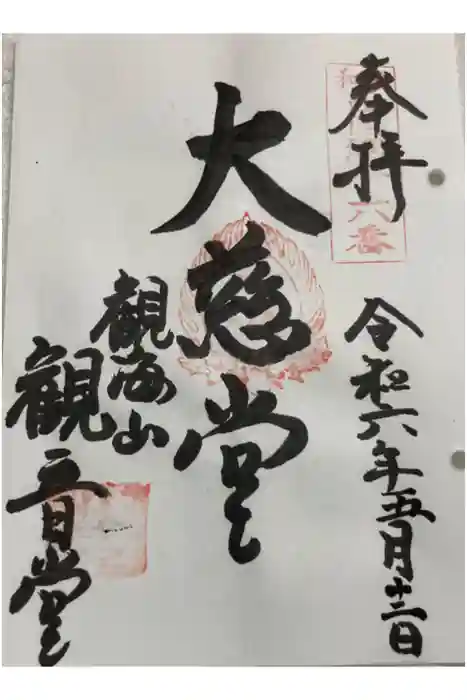 奉拝
令和六年五月十二日
大慈堂
観海山
観音堂
六番